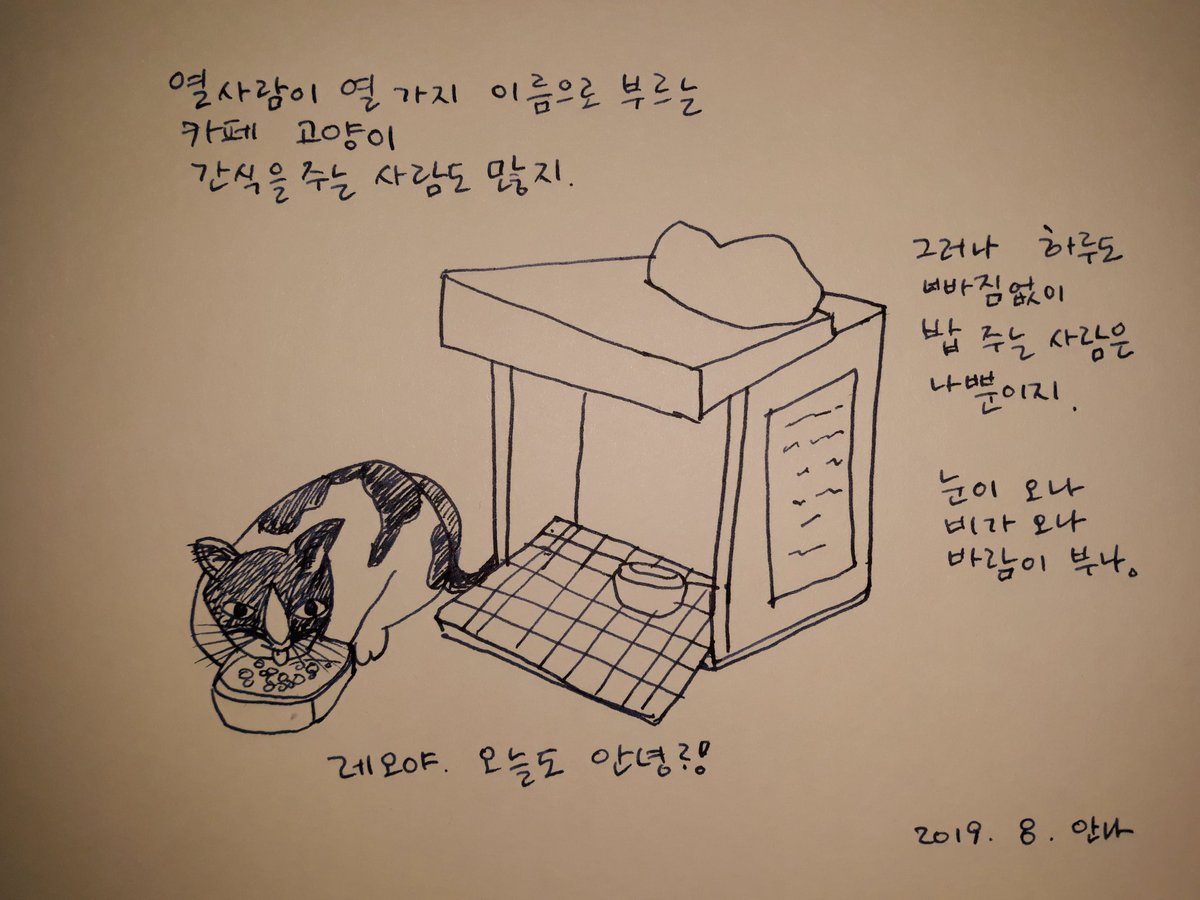 열사람이 열 가지 이름으로 부르는
카페 고양이
간식을 주는 사람도 많지.
그러나 하루도
빠짐없이
밥 주는 사람은
나뿐이지.
눈이 오나
비가 오나
바람이 부나。
레오야. 오늘도 안녕?!
2019. 8. 안나